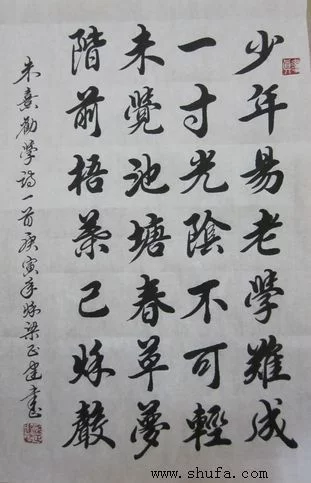 少年易老學難成
一寸光陰不可輕
未覺池塘春草夢
階前梧葉已秌聲
朱熹勸學詩一首庚寅年秌梁正建書
www.shufa.com